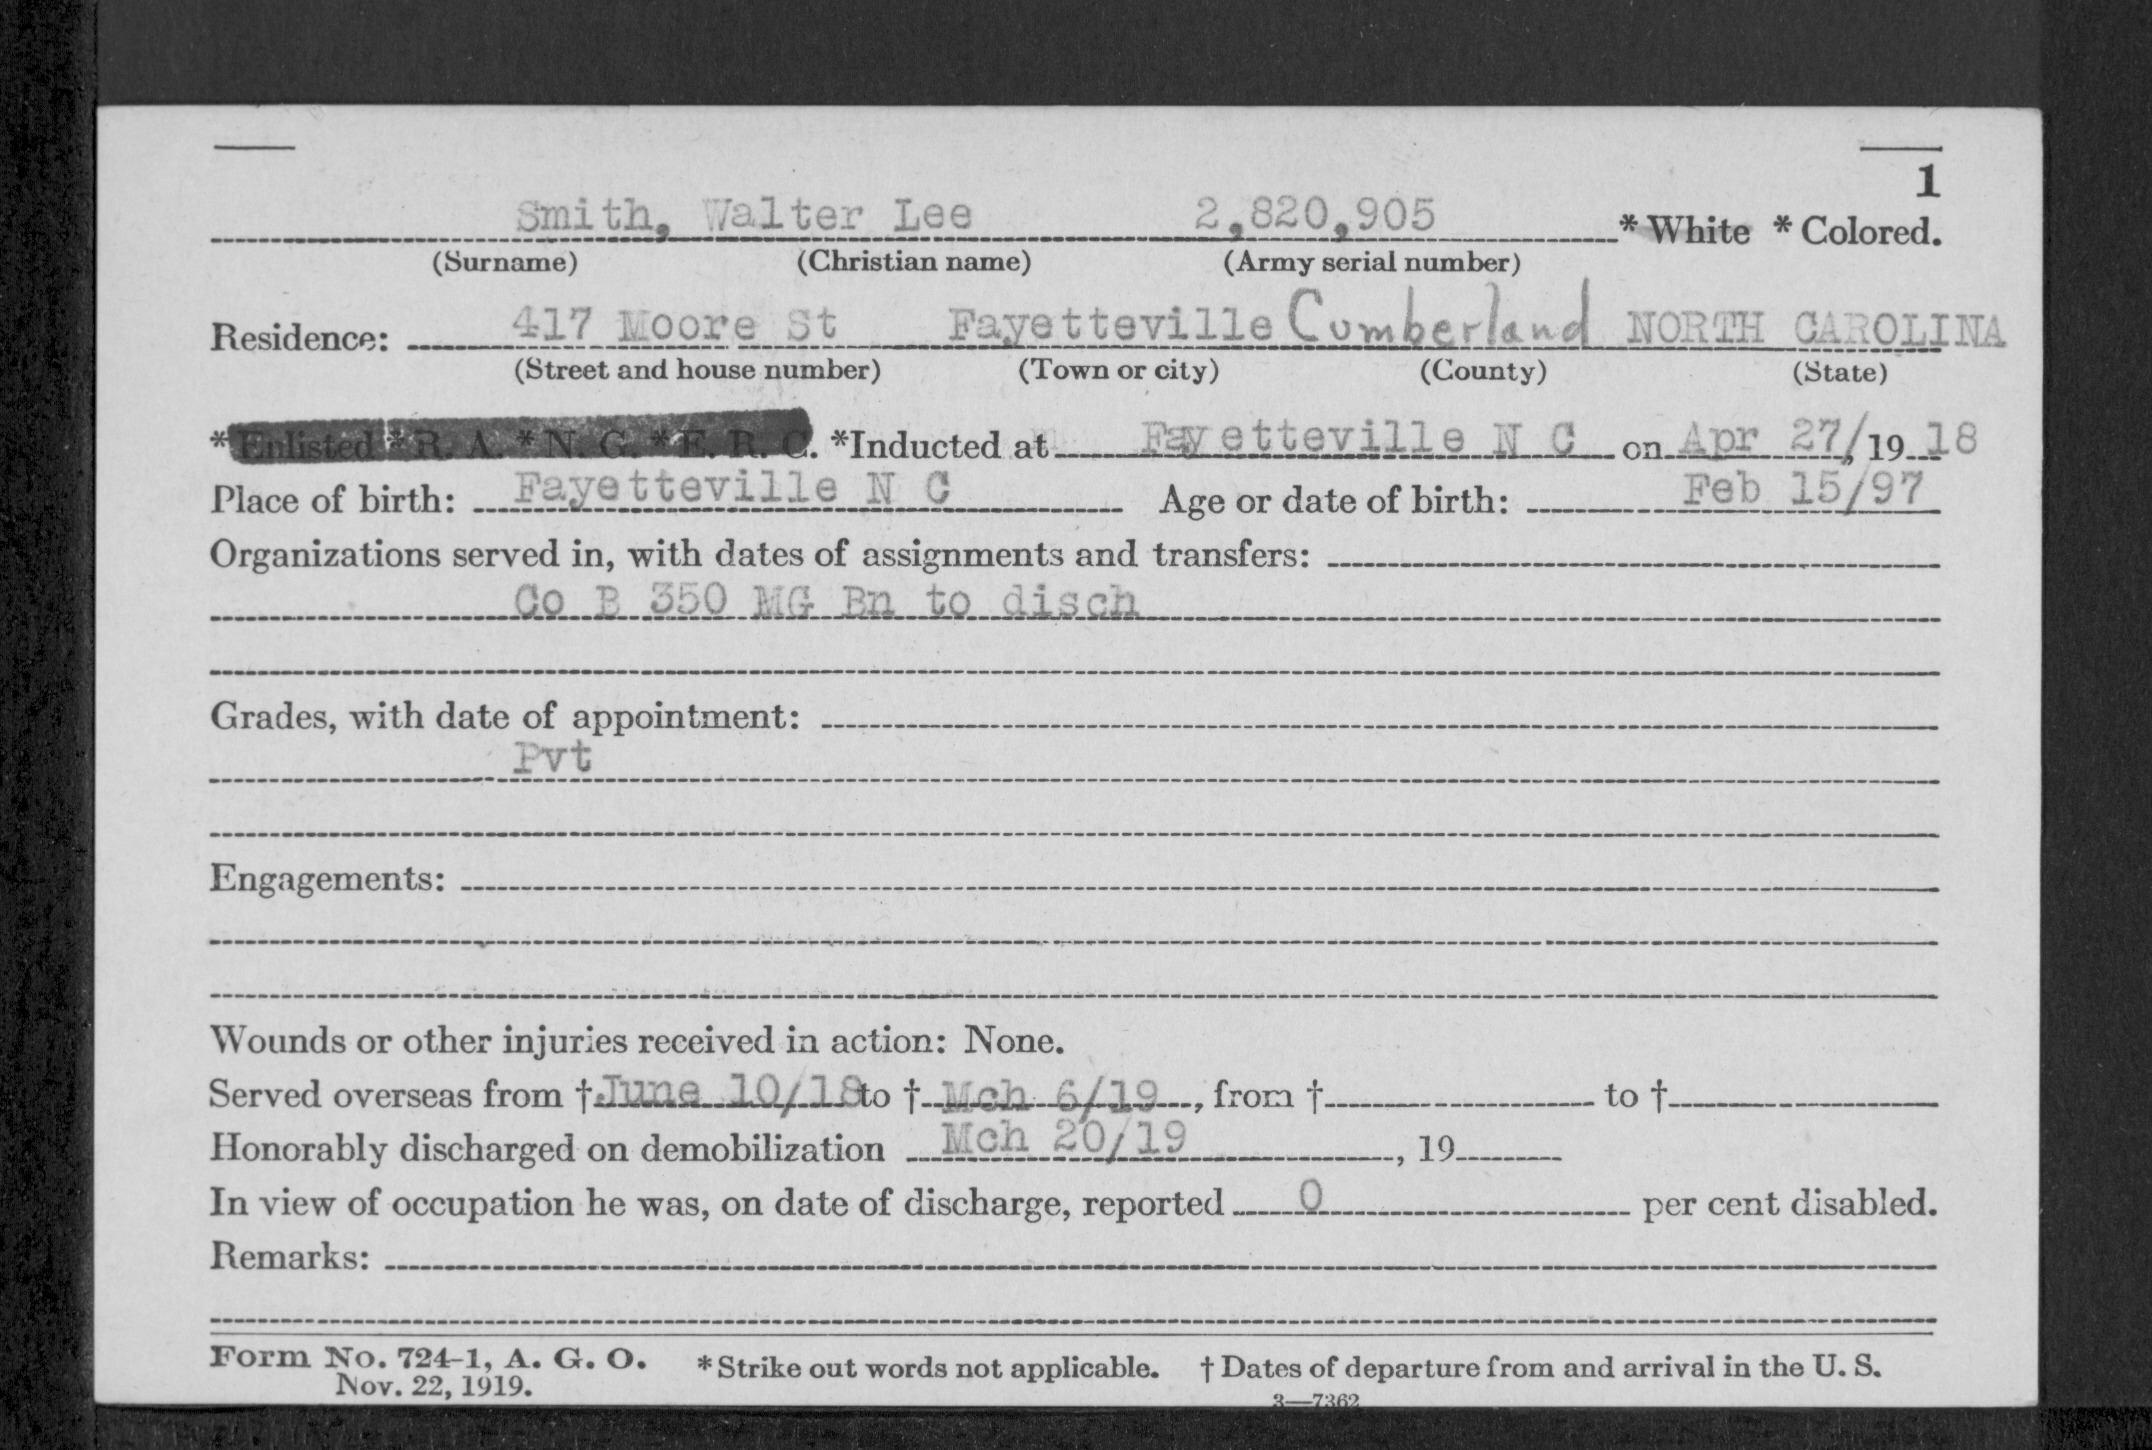 1
Smith, Walter Lee 2,820,905 * White * Colored.
(Surname) (Christian name) (Army serial number)
Residence: 417 Moore St Fayetteville Cumberland NORTH CAROLINA
(Street and house number) (Town or city) (County) (State)
* Enlisted * R. A. * N. G. * E. R. C. *Inducted at Fayetteville N C on Apr 27/, 19 18
Place of birth: Fayetteville N C Age or date of birth: Feb 15/97
Organizations served in, with dates of assignments and transfers:
Co B 350 MG Bn to disch
Grades, with date of appointment:
Pvt
Engagements:
Wounds or other injuries received in action: None.
Served overseas from † June 10/18 to † Mch 6/19, from † to †
Honorably discharged on demobilization Mch 20/19, 19
In view of occupation he was, on date of discharge, reported 0 per cent disabled.
Remarks:
Form No. 724-1, A. G. O. * Strike out words not applicable. † Dates of departure from and arrival in the U. S.
Nov. 22, 1919.
3—7362